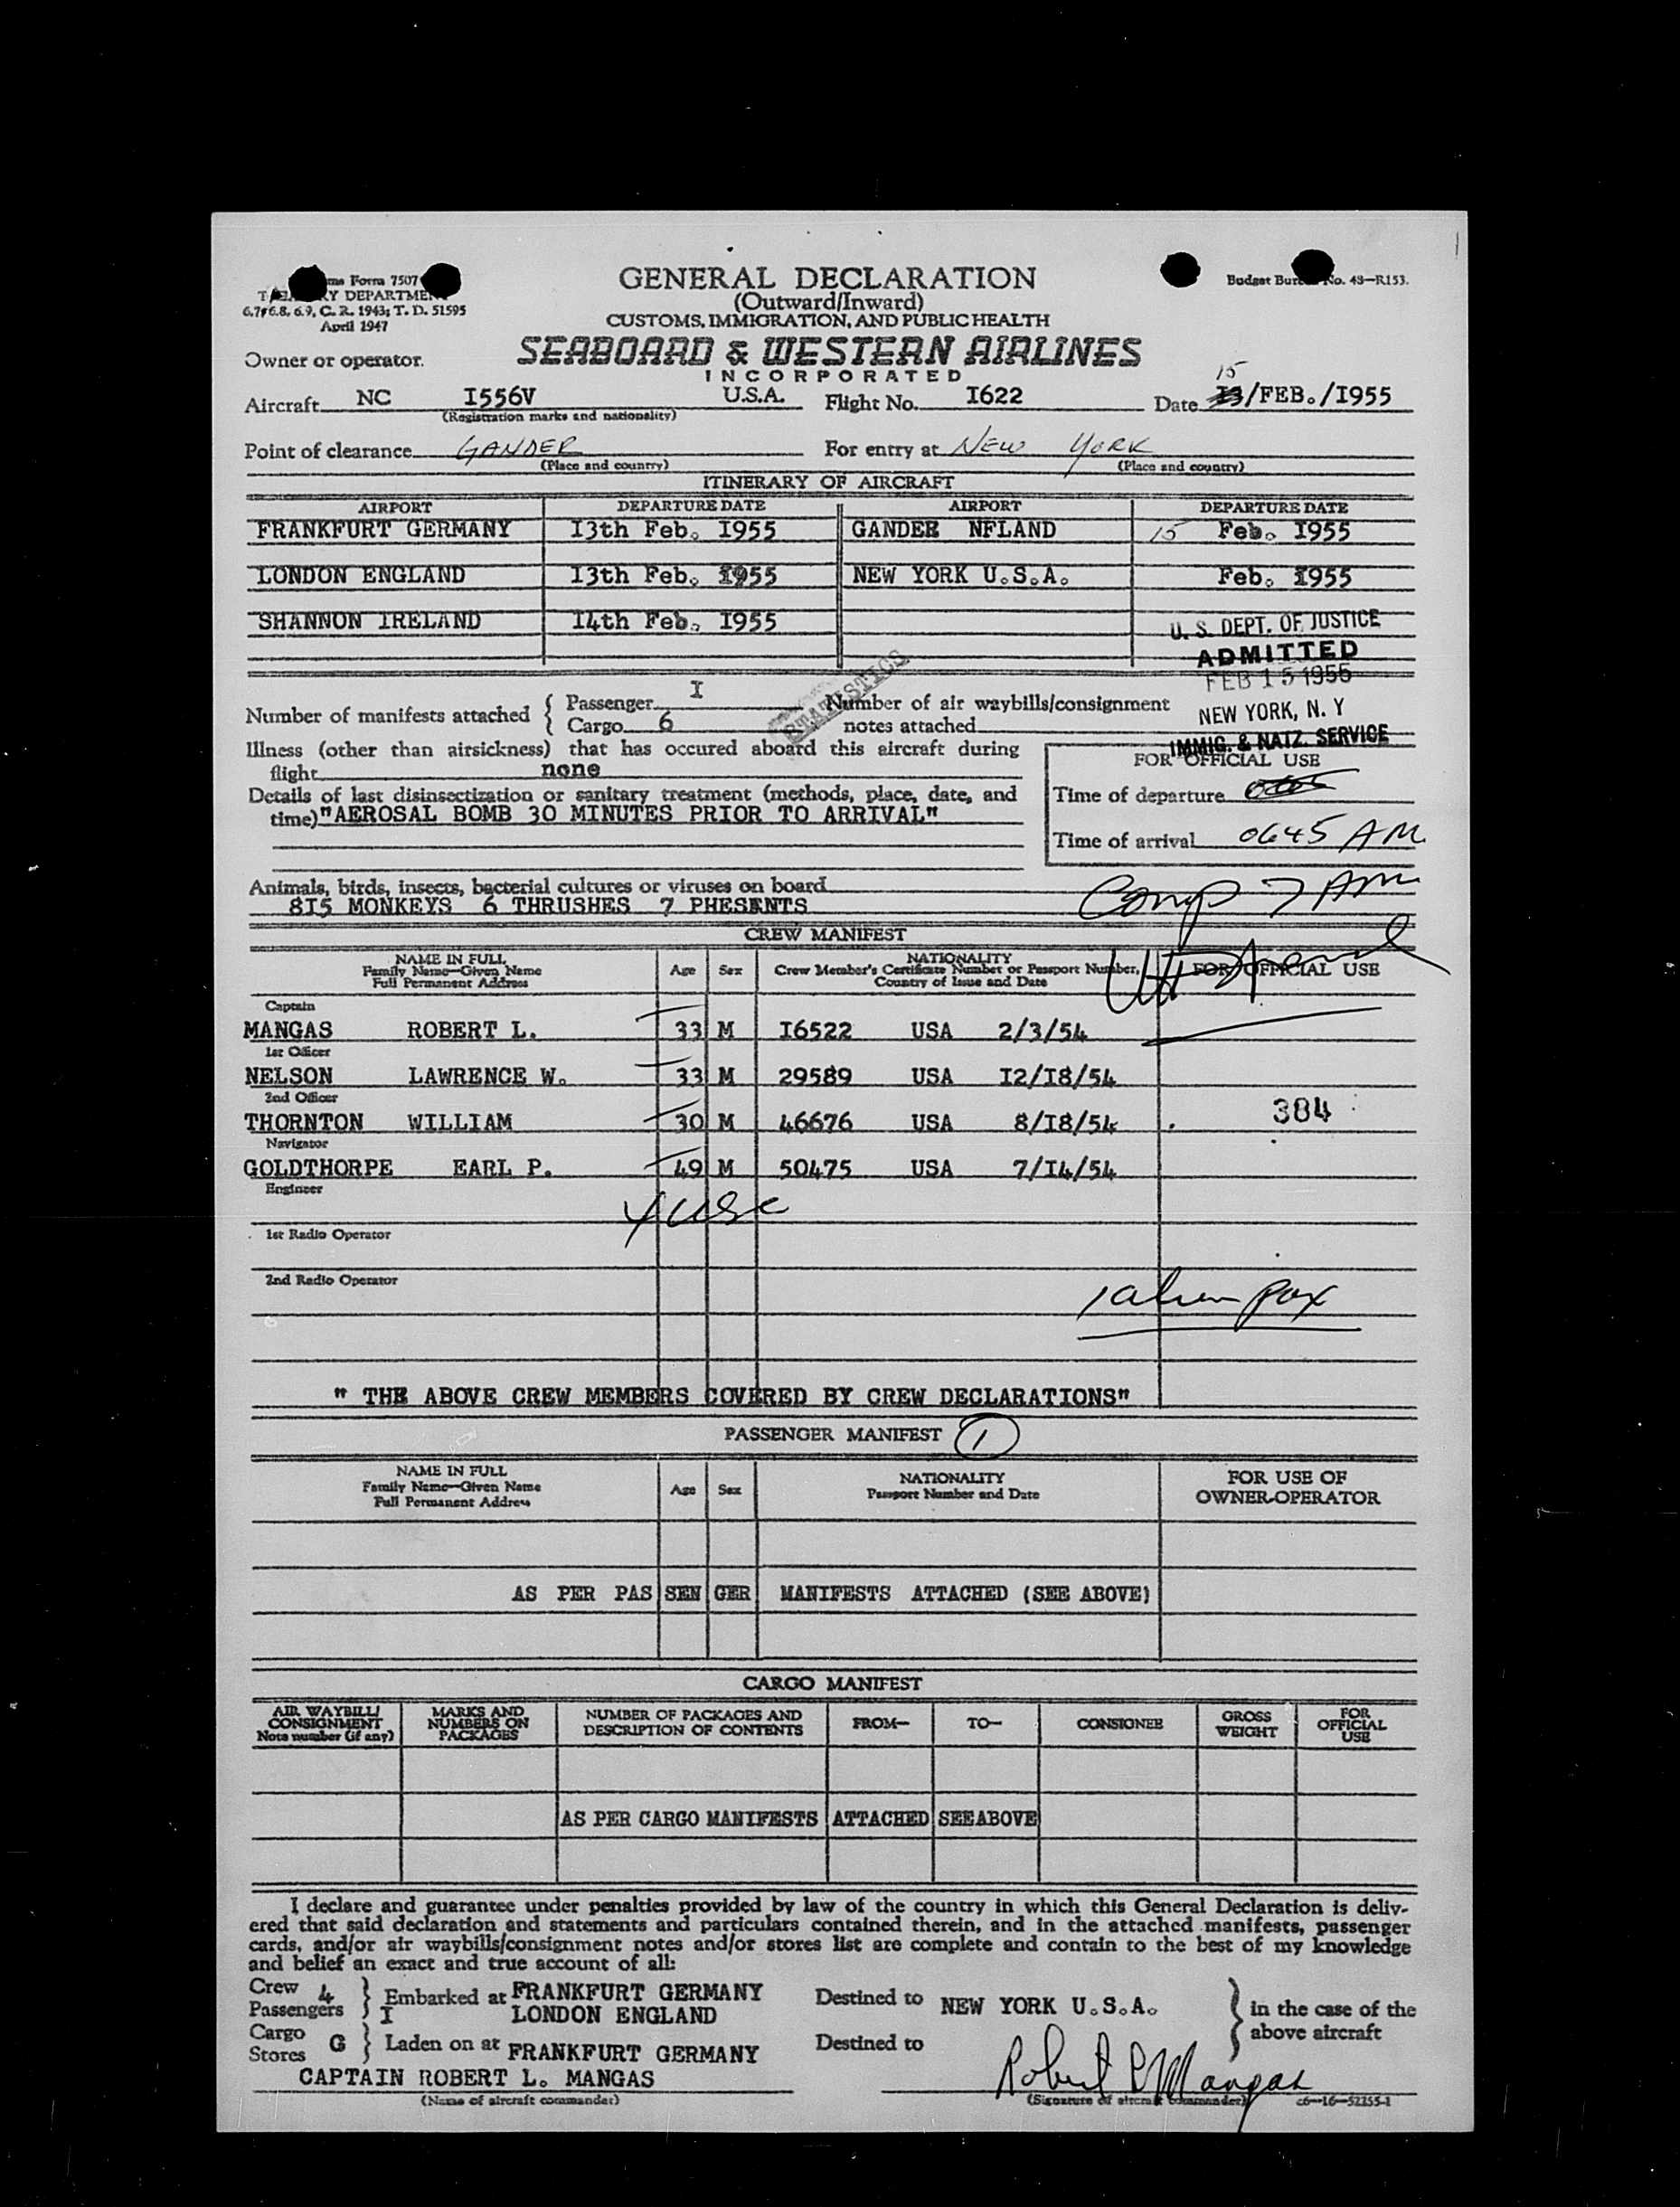 ms Form 7507
TREASURY DEPARTMENT
6.7, 6.8, 6.9, C. R. 1943; T. D. 51595
April 1947
GENERAL DECLARATION
(Outward/Inward)
CUSTOMS, IMMIGRATION, AND PUBLIC HEALTH
Budget Bureau No. 43—R153.
Owner or operator.
SEABOARD & WESTERN AIRLINES
INCORPORATED
15
Aircraft NC I556V U.S.A. Flight No. I622 Date /FEB./I955
(Registration marks and nationality)
Point of clearance GANDER For entry at NEW YORK
(Place and country) (Place and country)
ITINERARY OF AIRCRAFT
AIRPORT DEPARTURE DATE AIRPORT DEPARTURE DATE
FRANKFURT GERMANY I3th Feb. I955 GANDER NFLAND 15 Feb. I955
LONDON ENGLAND I3th Feb. I955 NEW YORK U.S.A. Feb. I955
SHANNON IRELAND I4th Feb. I955
U. S. DEPT. OF JUSTICE
ADMITTED
FEB 15 1955
NEW YORK, N. Y
IMMIG. & NATZ. SERVICE
STATISTICS
Number of manifests attached { Passenger I Number of air waybills/consignment
Cargo 6 notes attached
Illness (other than airsickness) that has occured aboard this aircraft during
flight none
FOR OFFICIAL USE
Details of last disinsectization or sanitary treatment (methods, place, date, and
time) "AEROSAL BOMB 30 MINUTES PRIOR TO ARRIVAL"
Time of departure
Time of arrival 0645 AM
Animals, birds, insects, bacterial cultures or viruses on board
8I5 MONKEYS 6 THRUSHES 7 PHESANTS
Comp 7 AM
CREW MANIFEST
NAME IN FULL
Family Name—Given Name
Full Permanent Address
Age Sex
NATIONALITY
Crew Member's Certificate Number or Passport Number,
Country of Issue and Date
FOR OFFICIAL USE
Captain
MANGAS ROBERT L. 33 M I6522 USA 2/3/54
1st Officer
NELSON LAWRENCE W. 33 M 29589 USA I2/I8/54
2nd Officer
THORNTON WILLIAM 30 M 46676 USA 8/I8/54
384
Navigator
GOLDTHORPE EARL P. 49 M 50475 USA 7/I4/54
Engineer
4 USC
1st Radio Operator
2nd Radio Operator
1 alien pax
" THE ABOVE CREW MEMBERS COVERED BY CREW DECLARATIONS"
PASSENGER MANIFEST 1
NAME IN FULL
Family Name—Given Name
Full Permanent Address
Age Sex
NATIONALITY
Passport Number and Date
FOR USE OF
OWNER-OPERATOR
AS PER PAS SEN GER MANIFESTS ATTACHED (SEE ABOVE)
CARGO MANIFEST
AIR WAYBILL/
CONSIGNMENT
Note number (if any)
MARKS AND
NUMBERS ON
PACKAGES
NUMBER OF PACKAGES AND
DESCRIPTION OF CONTENTS
FROM—
TO—
CONSIGNEE
GROSS
WEIGHT
FOR
OFFICIAL
USE
AS PER CARGO MANIFESTS ATTACHED SEE ABOVE
I declare and guarantee under penalties provided by law of the country in which this General Declaration is deliv-
ered that said declaration and statements and particulars contained therein, and in the attached manifests, passenger
cards, and/or air waybills/consignment notes and/or stores list are complete and contain to the best of my knowledge
and belief an exact and true account of all:
Crew 4 } Embarked at FRANKFURT GERMANY Destined to NEW YORK U.S.A. } in the case of the
Passengers I LONDON ENGLAND
Cargo G } Laden on at FRANKFURT GERMANY Destined to above aircraft
Stores
CAPTAIN ROBERT L. MANGAS Robert L Mangas
(Name of aircraft commander) (Signature of aircraft commander) c6—16—52255-1